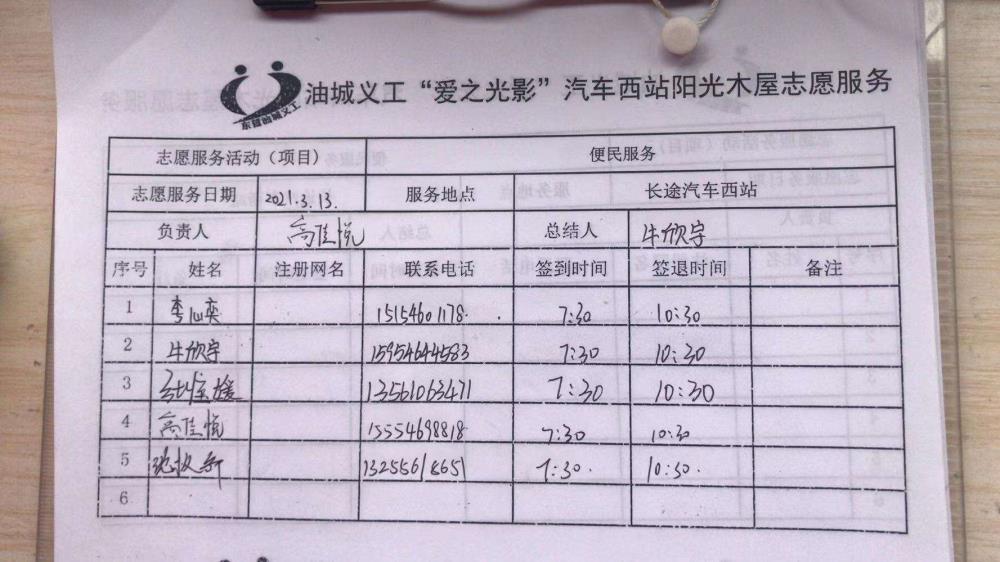 东营油城义工
油城义工“爱之光影”汽车西站阳光木屋志愿服务
志愿服务活动（项目） 便民服务
志愿服务日期 2021.3.13. 服务地点 长途汽车西站
负责人 高佳悦 总结人 牛欣宇
序号 姓名 注册网名 联系电话 签到时间 签退时间 备注
1 李心奕 15154601178. 7:30 10:30
2 牛欣宇 15954644583 7:30 10:30
3 13561063471 7:30 10:30
4 高佳悦 15554698818 7:30 10:30
5 13255618651 7:30. 10:30.
6